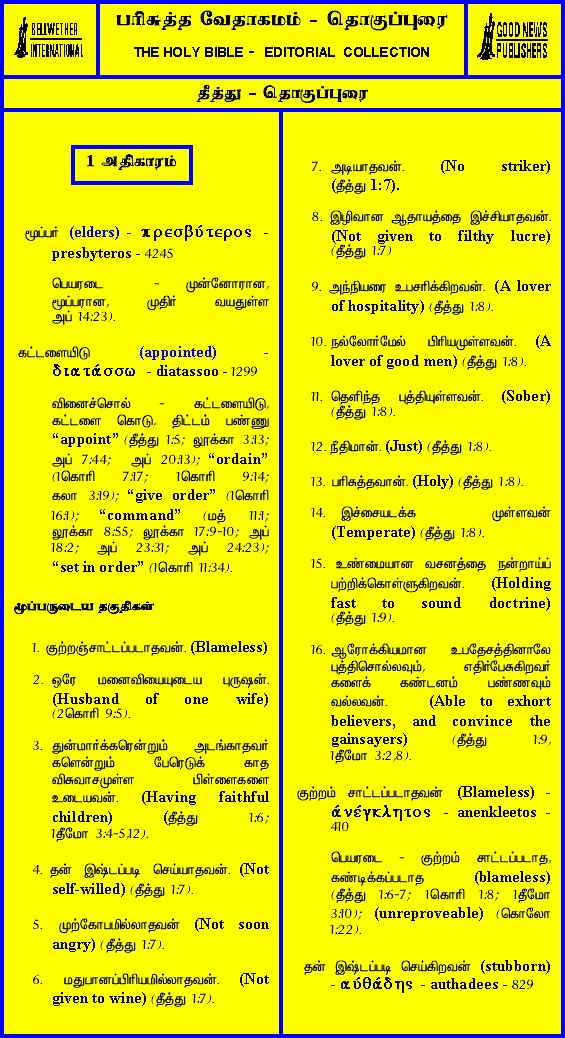 BELLWETHER
INTERNATIONAL
பரிசுத்த வேதாகமம் - தொகுப்புரை
THE HOLY BIBLE - EDITORIAL COLLECTION
GOOD NEWS
PUBLISHERS
தீத்து - தொகுப்புரை
1 அதிகாரம்
மூப்பர் (elders) - πρεσβύτερος -
presbyteros - 4245
பெயரடை - முன்னோரான,
மூப்பரான, முதிர் வயதுள்ள
அப் 14:23).
கட்டளையிடு (appointed) -
διατάσσω - diatassoo - 1299
வினைச்சொல் - கட்டளையிடு,
கட்டளை கொடு, திட்டம் பண்ணு
“appoint” (தீத்து 1:5; லூக்கா 3:13;
அப் 7:44; அப் 20:13); “ordain”
(1கொரி 7:17; 1கொரி 9:14;
கலா 3:19); “give order” (1கொரி
16:1); “command” (மத் 11:1;
லூக்கா 8:55; லூக்கா 17:9-10; அப்
18:2; அப் 23:31; அப் 24:23);
“set in order” (1கொரி 11:34).
மூப்பருடைய தகுதிகள்
1. குற்றஞ்சாட்டப்படாதவன். (Blameless)
2. ஒரே மனைவியையுடைய புருஷன்.
(Husband of one wife)
(2கொரி 9:5).
3. துன்மார்க்கரென்றும் அடங்காதவர்
களென்றும் பேரெடுக் காத
விசுவாசமுள்ள பிள்ளைகளை
உடையவன். (Having faithful
children) (தீத்து 1:6;
1தீமோ 3:4-5,12).
4. தன் இஷ்டப்படி செய்யாதவன். (Not
self-willed) (தீத்து 1:7).
5. முற்கோபமில்லாதவன் (Not soon
angry) (தீத்து 1:7).
6. மதுபானப்பிரியமில்லாதவன். (Not
given to wine) (தீத்து 1:7).
7. அடியாதவன். (No striker)
(தீத்து 1:7).
8. இழிவான ஆதாயத்தை இச்சியாதவன்.
(Not given to filthy lucre)
(தீத்து 1:7)
9. அந்நியரை உபசரிக்கிறவன். (A lover
of hospitality) (தீத்து 1:8).
10. நல்லோர்மேல் பிரியமுள்ளவன். (A
lover of good men) (தீத்து 1:8).
11. தெளிந்த புத்தியுள்ளவன். (Sober)
(தீத்து 1:8).
12. நீதிமான். (Just) (தீத்து 1:8).
13. பரிசுத்தவான். (Holy) (தீத்து 1:8).
14. இச்சையடக்க முள்ளவன்
(Temperate) (தீத்து 1:8).
15. உண்மையான வசனத்தை நன்றாய்ப்
பற்றிக்கொள்ளுகிறவன். (Holding
fast to sound doctrine)
(தீத்து 1:9).
16. ஆரோக்கியமான உபதேசத்தினாலே
புத்திசொல்லவும், எதிர்பேசுகிறவர்
களைக் கண்டனம் பண்ணவும்
வல்லவன். (Able to exhort
believers, and convince the
gainsayers) (தீத்து 1:9,
1தீமோ 3:2,8).
குற்றம் சாட்டப்படாதவன் (Blameless) -
ἀνέγκλητος - anenkleetos -
410
பெயரடை - குற்றம் சாட்டப்படாத,
கண்டிக்கப்படாத (blameless)
(தீத்து 1:6-7; 1கொரி 1:8; 1தீமோ
3:10); (unreproveable) (கொலோ
1:22).
தன் இஷ்டப்படி செய்கிறவன் (stubborn)
- αὐθάδης - authadees - 829